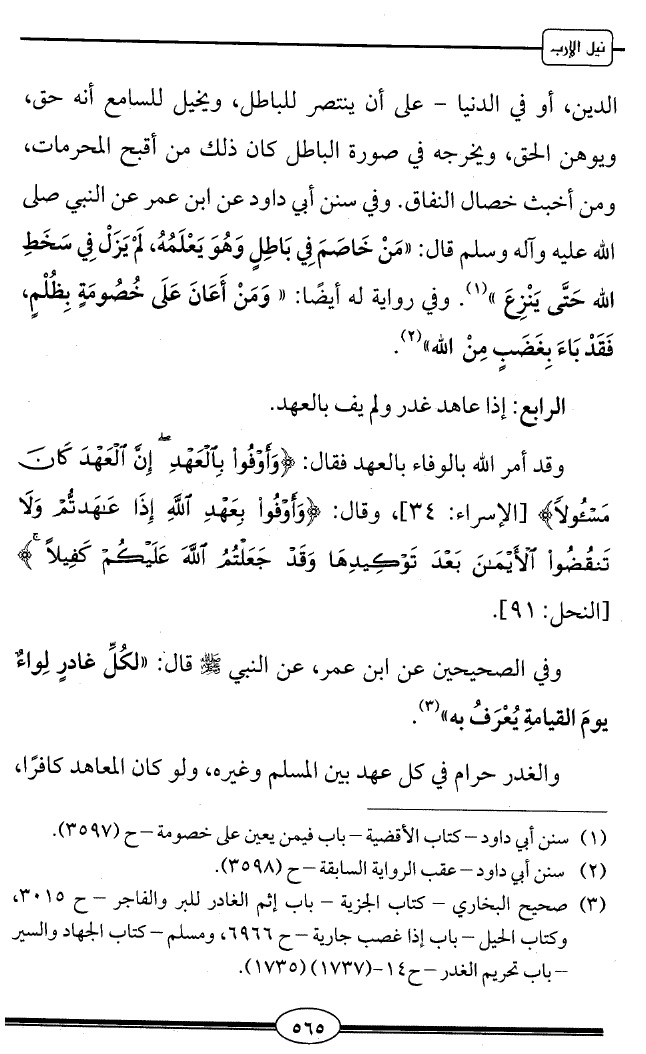 نيل الإرب
الدين، أو في الدنيا - على أن ينتصر للباطل، ويخيل للسامع أنه حق،
ويوهن الحق، ويخرجه في صورة الباطل كان ذلك من أقبح المحرمات،
ومن أخبث خصال النفاق. وفي سنن أبي داود عن ابن عمر عن النبي صلى
الله عليه وآله وسلم قال: «مَنْ خَاصَمَ فِي بَاطِلٍ وَهُوَ يَعْلَمُهُ، لَمْ يَزَلْ فِي سَخَطِ
الله حَتَّى يَنْزِعَ »(١). وفي رواية له أيضًا: « وَمَنْ أَعَانَ عَلَى خُصُومَةٍ بِظُلْمٍ،
فَقَدْ بَاءَ بِغَضَبٍ مِنْ الله»(٢).
الرابع: إذا عاهد غدر ولم يف بالعهد.
وقد أمر الله بالوفاء بالعهد فقال: ﴿وَأَوْفُواْ بِالْعَهْدِ ۖ إِنَّ الْعَهْدَ كَانَ
مَسْئُولاً﴾ [الإسراء: ٣٤]، وقال: ﴿وَأَوْفُواْ بِعَهْدِ اللَّهِ إِذَا عَـٰهَدتُّمْ وَلَا
تَنقُضُواْ الْأَيْمَـٰنَ بَعْدَ تَوْكِيدِهَا وَقَدْ جَعَلْتُمُ اللَّهَ عَلَيْكُمْ كَفِيلاً ۚ﴾
[النحل: ٩١].
وفي الصحيحين عن ابن عمر، عن النبي ﷺ قال: «لكُلِّ غادرٍ لِواءٌ
يومَ القيامةِ يُعْرَفُ به»(٣).
والغدر حرام في كل عهد بين المسلم وغيره، ولو كان المعاهد كافرًا،
(١) سنن أبي داود – كتاب الأقضية – باب فيمن يعين على خصومة – ح (٣٥٩٧).
(٢) سنن أبي داود – عقب الرواية السابقة – ح (٣٥٩٨).
(٣) صحيح البخاري – كتاب الجزية – باب إثم الغادر للبر والفاجر – ح ٣٠١٥،
وكتاب الحيل – باب إذا غصب جارية – ح ٦٩٦٦، ومسلم – كتاب الجهاد والسير
– باب تحريم الغدر – ح١٤-(١٧٣٧) (١٧٣٥).
٥٦٥